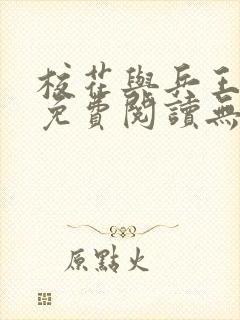 校花與兵王
免費閱讀無
原點火